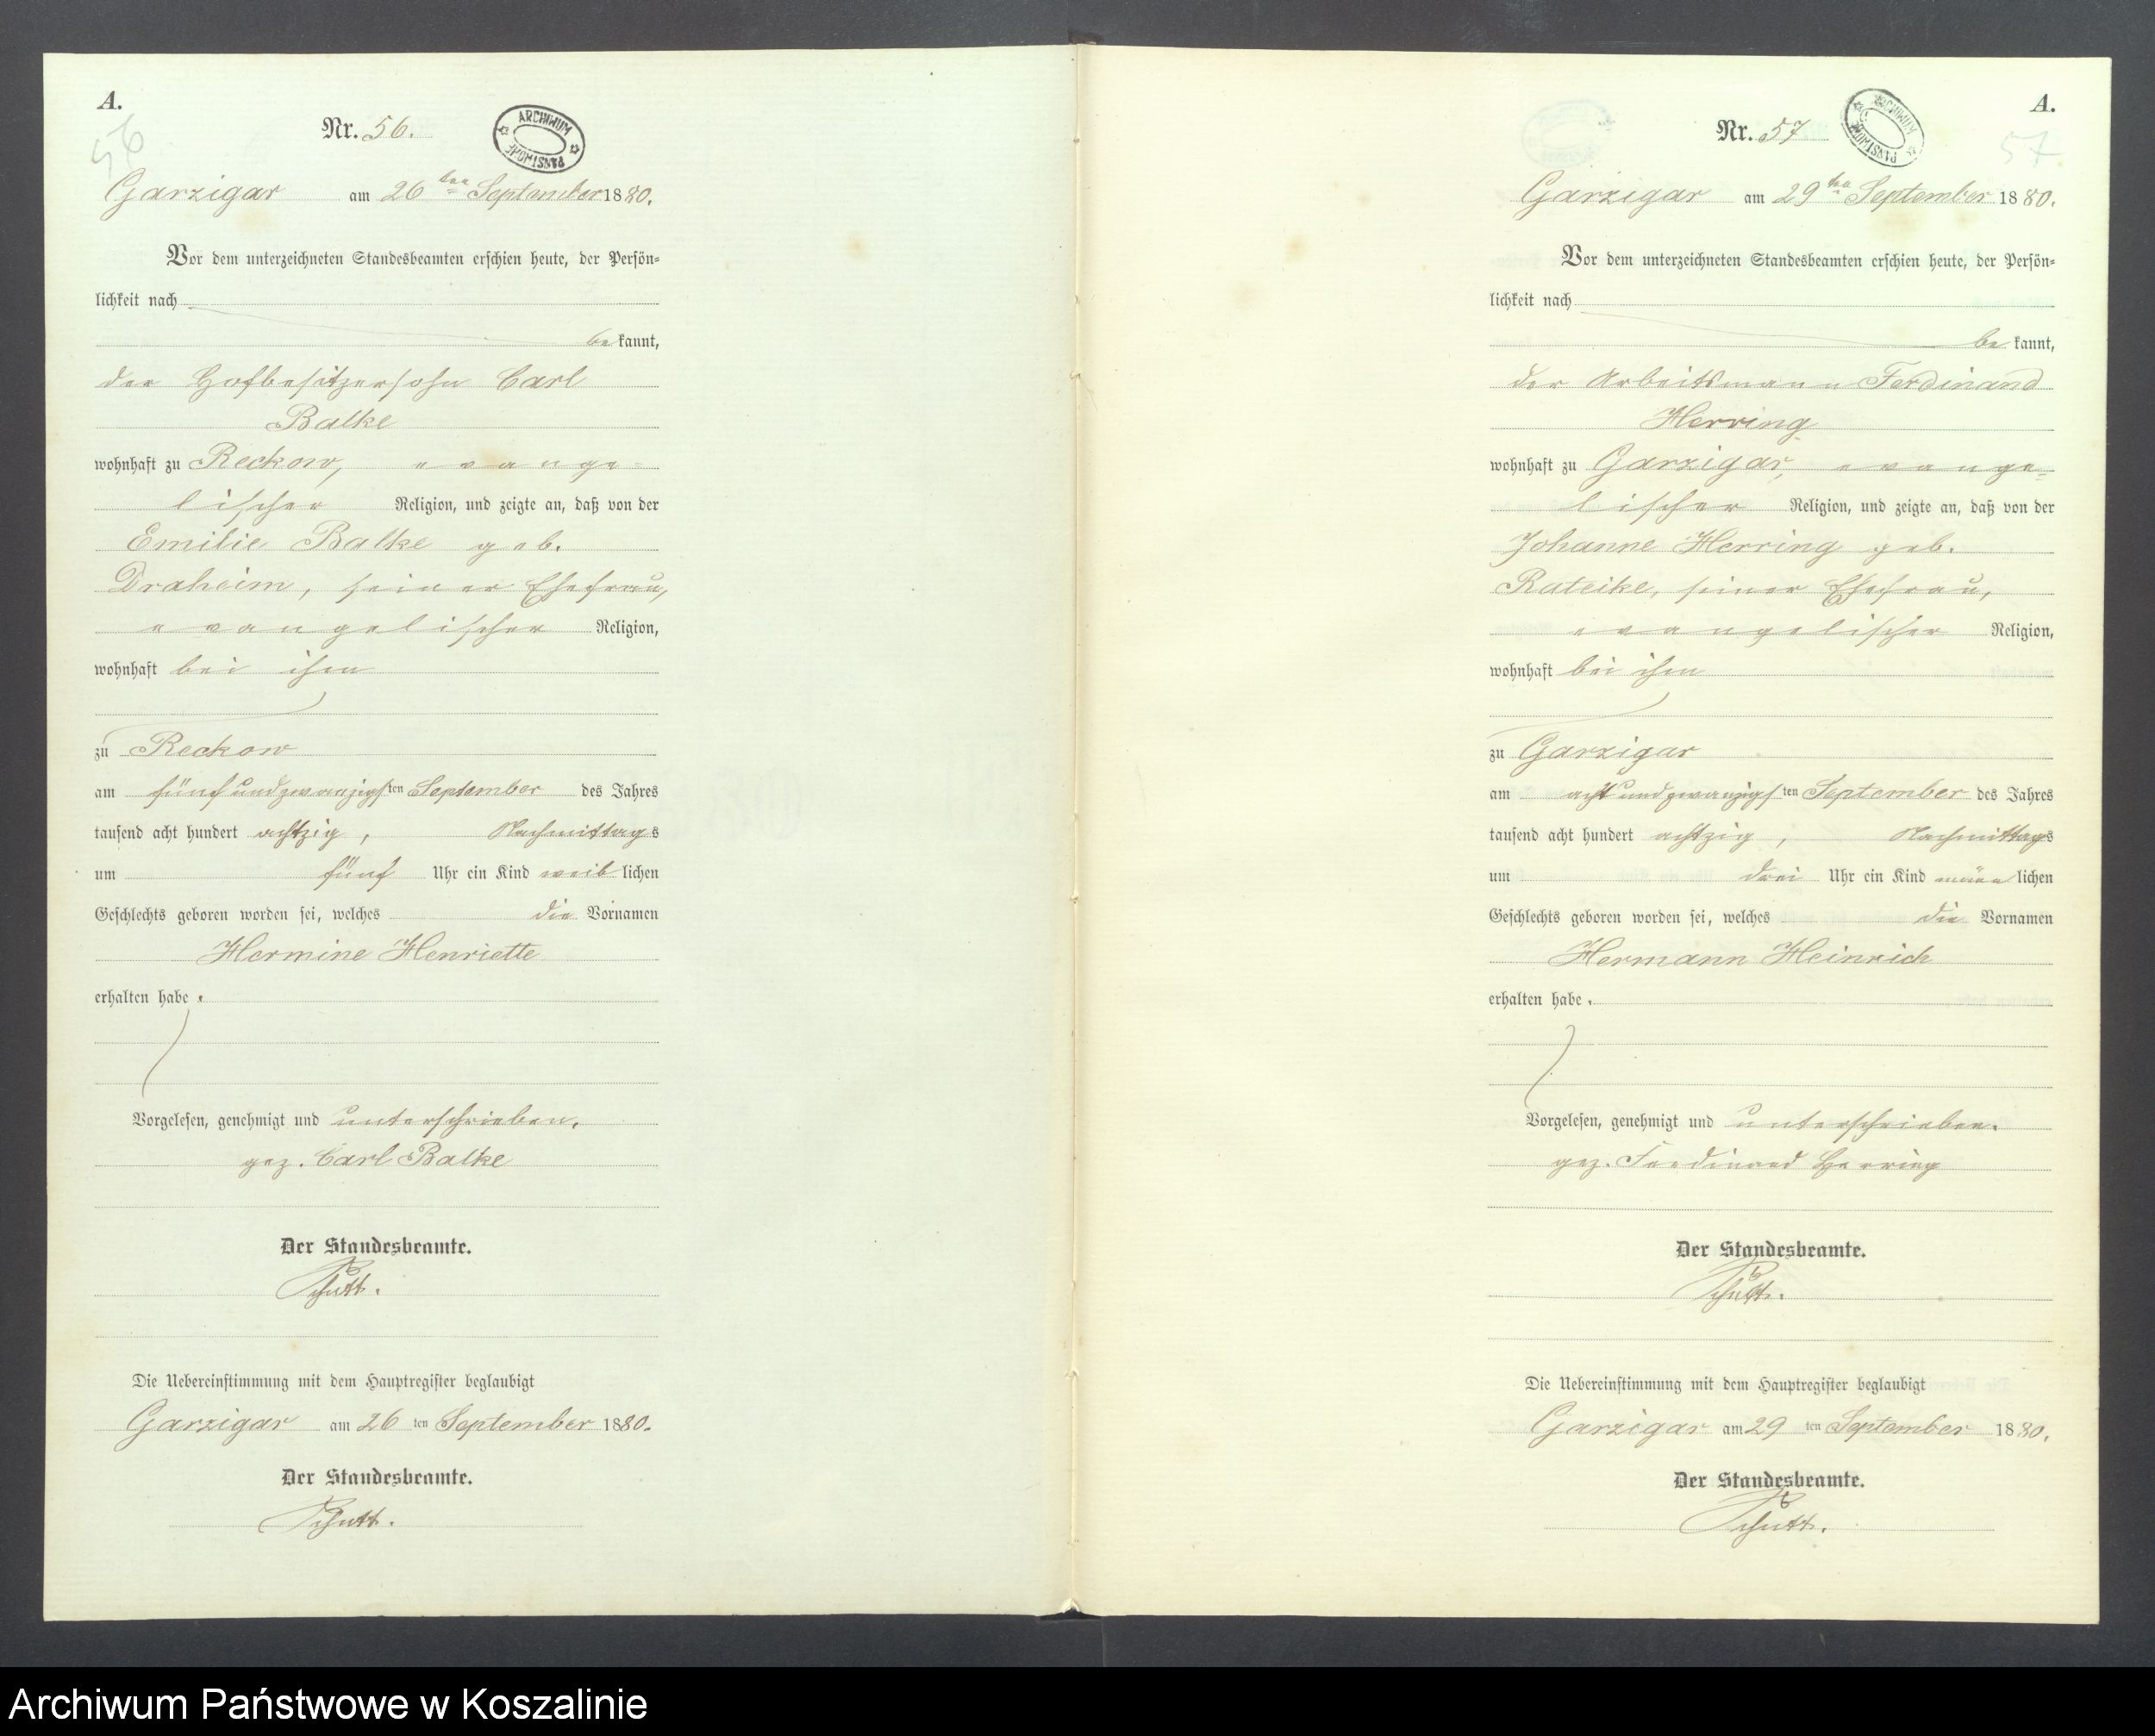 A.
56
Nr. 56.
ARCHIWUM PAŃSTWOWE
Garzigar am 26ten September 1880.
Vor dem unterzeichneten Standesbeamten erschien heute, der Persön-
lichkeit nach
bekannt,
der Hofbesitzersohn Carl
Balke
wohnhaft zu Reckow, evange-
lischer Religion, und zeigte an, daß von der
Emilie Balke geb.
Draheim, seiner Ehefrau,
evangelischer Religion,
wohnhaft bei ihm
zu Reckow
am fünfundzwanzigsten September des Jahres
tausend acht hundert achtzig, Nachmittags
um fünf Uhr ein Kind weiblichen
Geschlechts geboren worden sei, welches die Vornamen
Hermine Henriette
erhalten habe.
Vorgelesen, genehmigt und unterschrieben.
gez. Carl Balke
Der Standesbeamte.
Die Uebereinstimmung mit dem Hauptregister beglaubigt
Garzigar am 26ten September 1880.
Der Standesbeamte.
A.
57
Nr. 57
ARCHIWUM PAŃSTWOWE
Garzigar am 29ten September 1880.
Vor dem unterzeichneten Standesbeamten erschien heute, der Persön-
lichkeit nach
bekannt,
der Arbeitsmann Ferdinand
Herring
wohnhaft zu Garzigar, evange-
lischer Religion, und zeigte an, daß von der
Johanne Herring geb.
Rateike, seiner Ehefrau,
evangelischer Religion,
wohnhaft bei ihm
zu Garzigar
am achtundzwanzigsten September des Jahres
tausend acht hundert achtzig, Nachmittags
um drei Uhr ein Kind männlichen
Geschlechts geboren worden sei, welches die Vornamen
Hermann Heinrich
erhalten habe.
Vorgelesen, genehmigt und unterschrieben.
gez. Ferdinand Herring
Der Standesbeamte.
Die Uebereinstimmung mit dem Hauptregister beglaubigt
Garzigar am 29ten September 1880.
Der Standesbeamte.
Archiwum Państwowe w Koszalinie